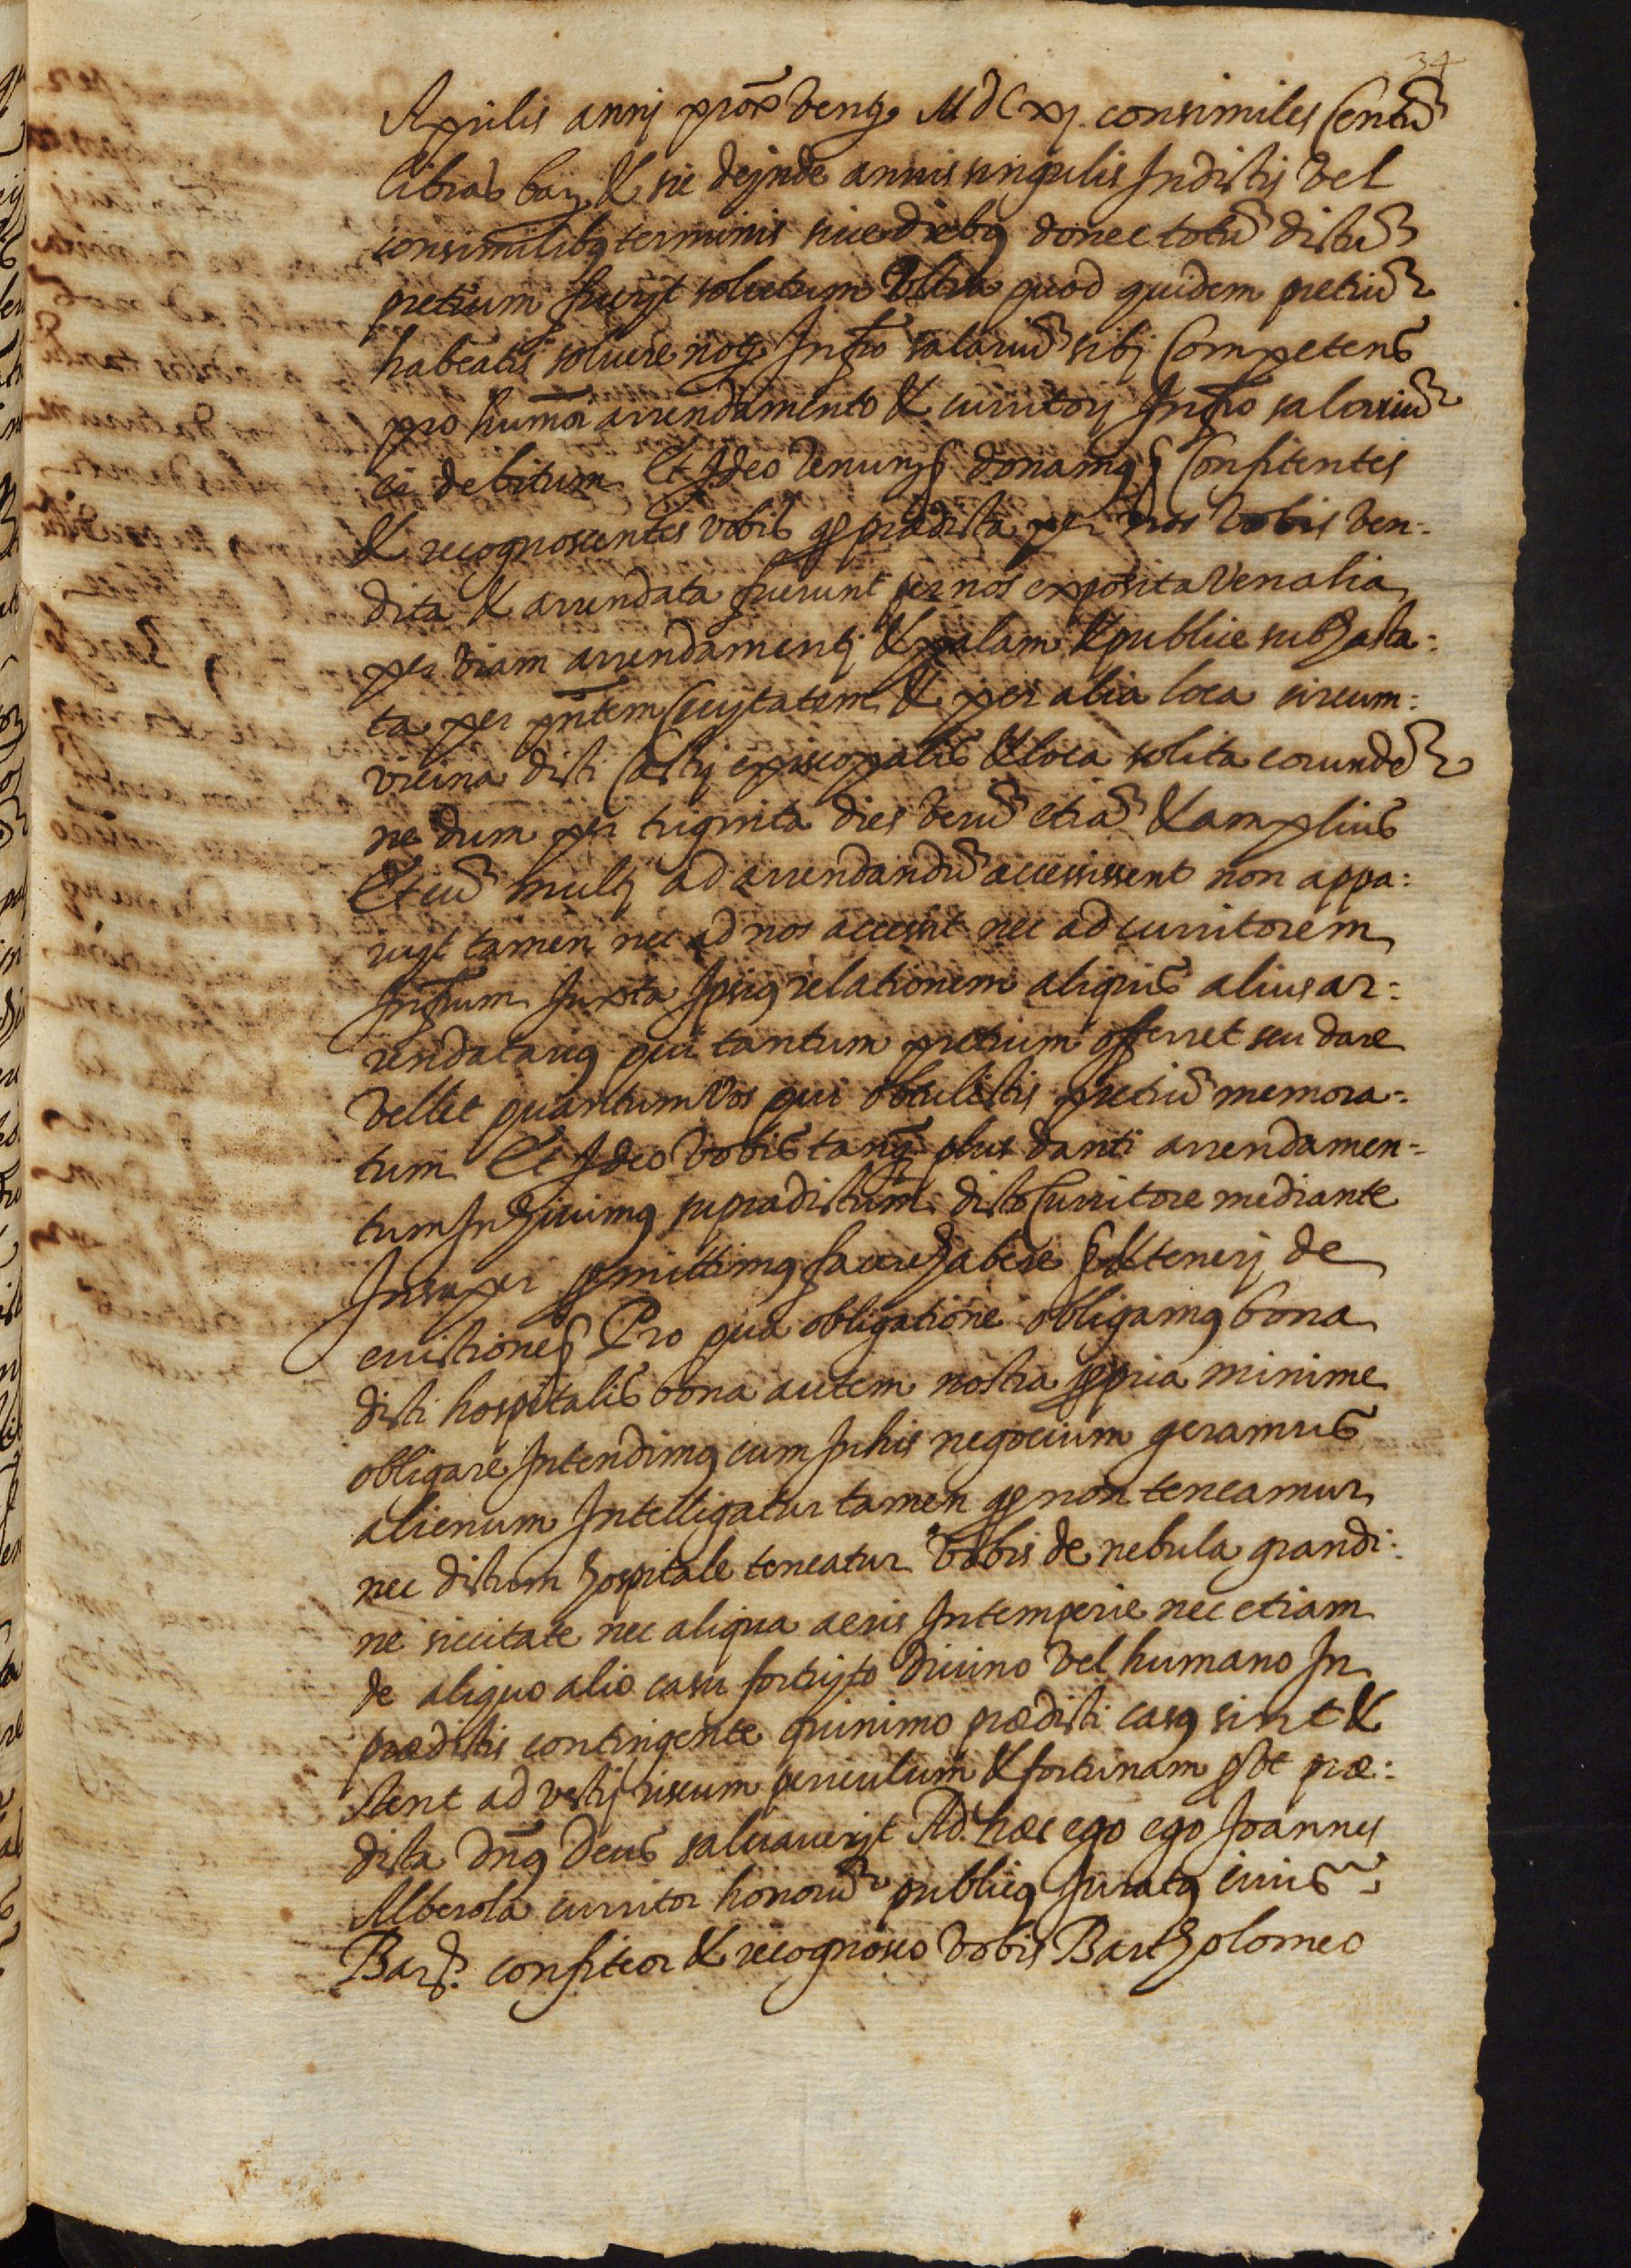 34
Aprilis annj prox̄ venț MdCxj. consimiles Centū
libras barꝫ & sic dejnde annis singulis Jn dictis vel
consimilibꝰ terminis siue diebꝰ donec totū dictū
pretium fuerjt solutum Vltra quod quidem pretiū
habeatis soluere notꝫ Jnfr̄o salariū sibj Competens
pro hum̄oi arrendamento & curritorj Jnfr̄o salariū
ei debitum Et Jdeo renunꝫ donamꝰ Confitentes
& recognoscentes vobis qꝫ prædicta per nos vobis ven:
dita & arrendata fuerunt per nos exposita Venalia
per viam arrendamentj & palam & publice subhasta:
ta per pn̄tem Ciujtatem & per alia loca circum:
vicina dicti Castrj episcopalis & loca solita eorundē
ne dum per triginta dies verū etiā & amplius
Et cū multj ad arrendandū accessissent non appa:
rujt tamen nec ad nos accessit nec ad curritorem
Jnfrūm Juxta Jpsiꝰ relationem aliquis alius ar:
rendatariꝰ qui tantum pretium offerret seu dare
vellet quantum Vos qui obtulistis pretiū memora:
tum Et Jdeo vobis tanq̄ plus danti arrendamen:
tum Jndiuimꝰ supradictum dicto Curritore mediante
Jnsuper ꝓmittimꝰ facere habere & tenerj de
euictione Pro qua obligatione obligamꝰ bona
dicti hospitalis bona autem nostra ꝓpria minime
obligare Jntendimꝰ cum Jn his negocium geramus
alienum Jntelligatur tamen qꝫ non teneamur
nec dictum hospitale teneatur vobis de nebula grandi:
ne siccitate nec aliqua aeris Jntemperie nec etiam
de aliquo alio casu fortujto diuino vel humano Jn
prædictis contingente quinimo prædicti casꝰ sint &
stent ad vestrj riscum periculum & fortunam ꝓut præ:
dicta Dn̄ꝰ Deus saluauerjt Ad hæc ego ego Joannes
Alberola curritor honorū publicꝰ Juratꝰ ciuis
Barꝫ. confiteor & recognosco vobis Bartholomeo